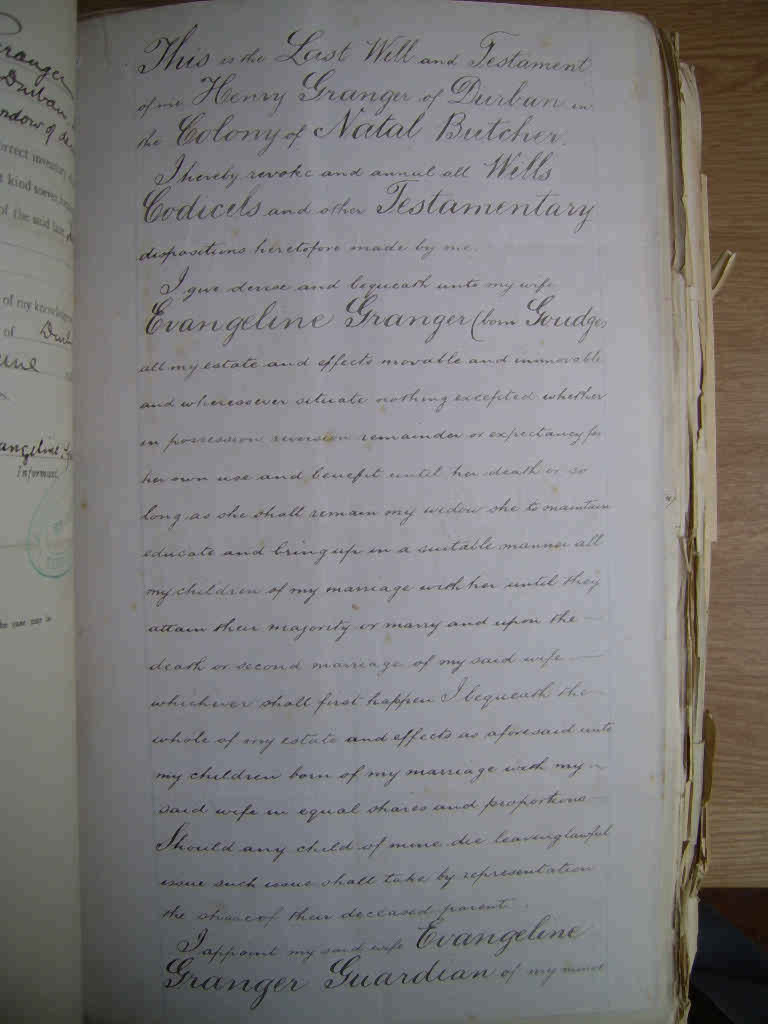 ranger
Durban
ndow of de
orrect inventory
t kind soever,
of the said late
of my knowledge
of Durb
une
angeline
Informant.
he case may be
This is the Last Will and Testament
of me Henry Granger of Durban in
the Colony of Natal Butcher.
I hereby revoke and annul all Wills
Codicels and other Testamentary
dispositions heretofore made by me.
I give devise and bequeath unto my wife
Evangeline Granger (born Goudge)
all my estate and effects movable and immovable
and wheresoever situate nothing excepted whether
in possession reversion remainder or expectancy for
her own use and benefit until her death or so
long as she shall remain my widow she to maintain
educate and bring up in a suitable manner all
my children of my marriage with her until they
attain their majority or marry and upon the
death or second marriage of my said wife
whichever shall first happen I bequeath the
whole of my estate and effects as aforesaid unto
my children born of my marriage with my
said wife in equal shares and proportions
Should any child of mine die leaving lawful
issue such issue shall take by representation
the share of their deceased parent.
I appoint my said wife Evangeline
Granger Guardian of my minor